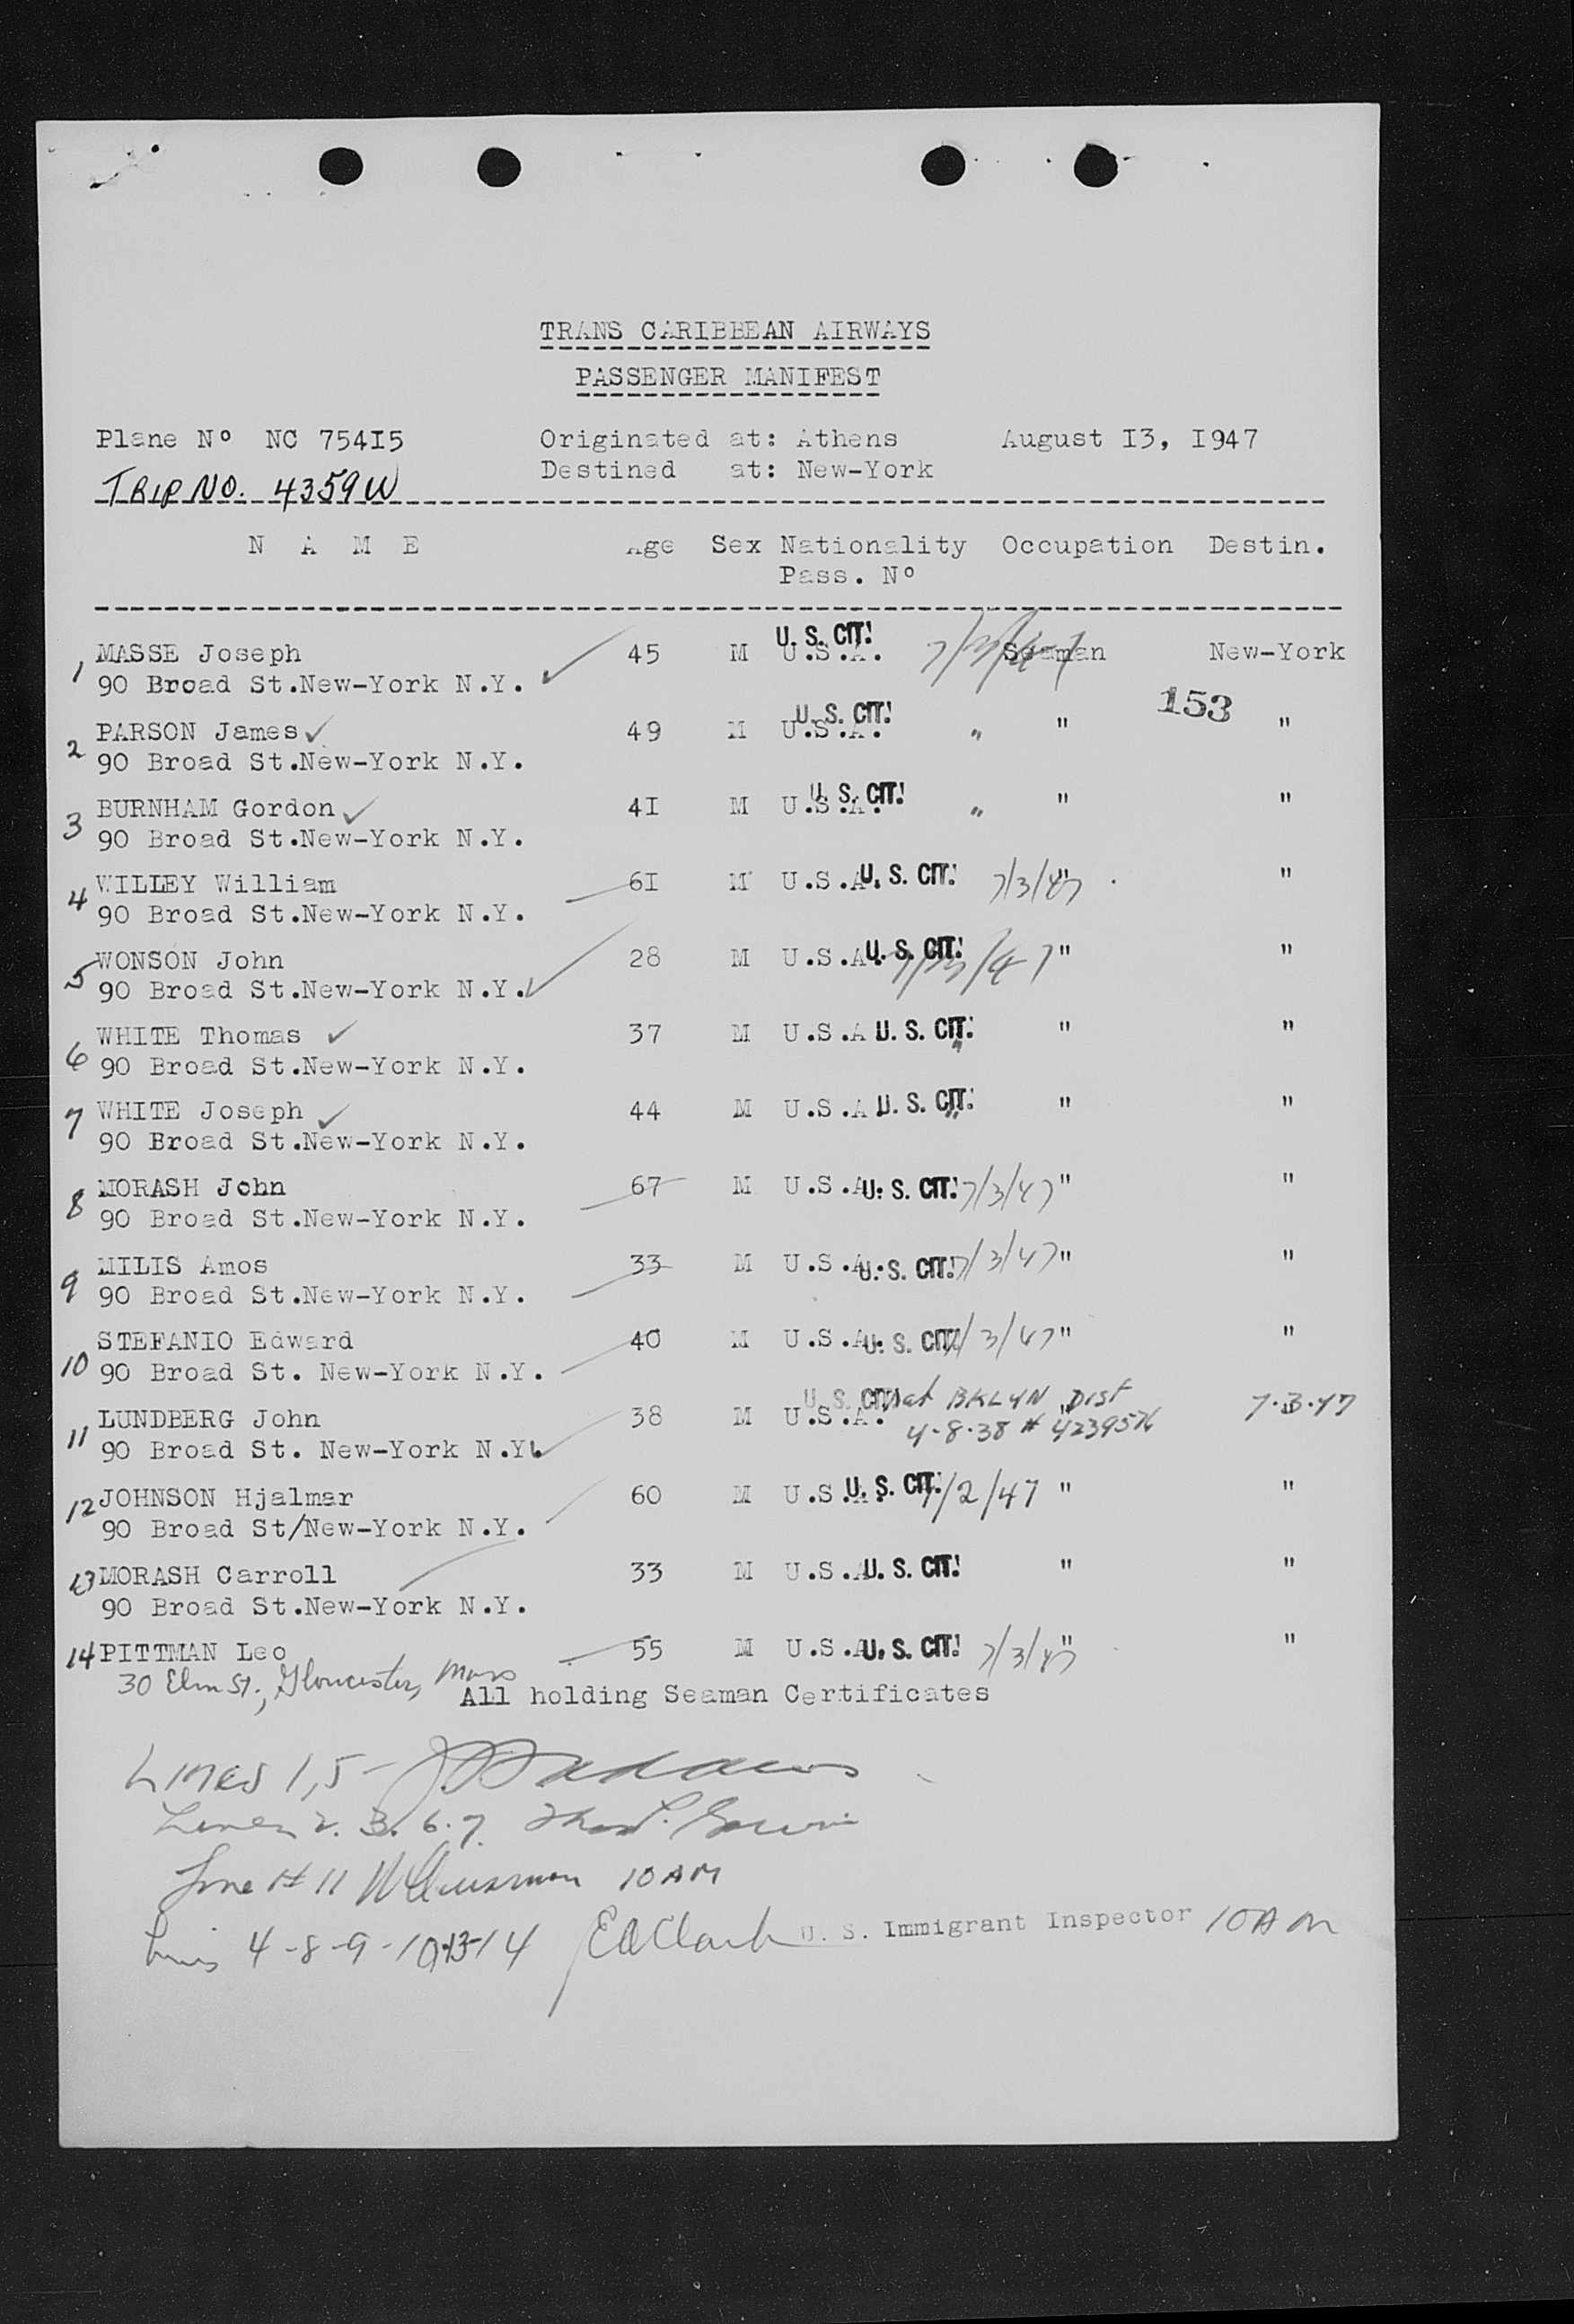 TRANS CARIBBEAN AIRWAYS
PASSENGER MANIFEST
Plane Nº NC 754I5 Originated at: Athens August I3, I947
Destined at: New-York
TRIP NO. 4359W
N A M E Age Sex Nationality Occupation Destin.
Pass. Nº
1 MASSE Joseph 45 M U.S.A. U. S. CIT. Seaman New-York
90 Broad St.New-York N.Y.
153
2 PARSON James 49 M U.S.A. U. S. CIT. " " "
90 Broad St.New-York N.Y.
3 BURNHAM Gordon 4I M U.S.A. U. S. CIT. " " "
90 Broad St.New-York N.Y.
4 WILLEY William 6I M U.S.A. U. S. CIT. 7/3/47 " "
90 Broad St.New-York N.Y.
5 WONSON John 28 M U.S.A. U. S. CIT. " "
90 Broad St.New-York N.Y.
6 WHITE Thomas 37 M U.S.A U. S. CIT. " " "
90 Broad St.New-York N.Y.
7 WHITE Joseph 44 M U.S.A U. S. CIT. " " "
90 Broad St.New-York N.Y.
8 MORASH John 67 M U.S.A. U. S. CIT. 7/3/47 " "
90 Broad St.New-York N.Y.
9 MILIS Amos 33 M U.S.A. U. S. CIT. 7/3/47 " "
90 Broad St.New-York N.Y.
10 STEFANIO Edward 40 M U.S.A. U. S. CIT. 7/3/47 " "
90 Broad St. New-York N.Y.
11 LUNDBERG John 38 M U.S.A. U. S. CIT. Nat BKLYN Dist " 7.3.47
90 Broad St. New-York N.Y. 4-8-38 # 4239576
12 JOHNSON Hjalmar 60 M U.S.A. U. S. CIT. 7/2/47 " "
90 Broad St/New-York N.Y.
13 MORASH Carroll 33 M U.S.A. U. S. CIT. " "
90 Broad St.New-York N.Y.
14 PITTMAN Leo 55 M U.S.A. U. S. CIT. 7/3/47 " "
30 Elm St., Gloucester, Mass
All holding Seaman Certificates
Lines 1,5
Lines 2. 3. 6. 7.
Line # 11 10 AM
Lines 4-8-9-10-13-14 E A Clark U. S. Immigrant Inspector 10 AM